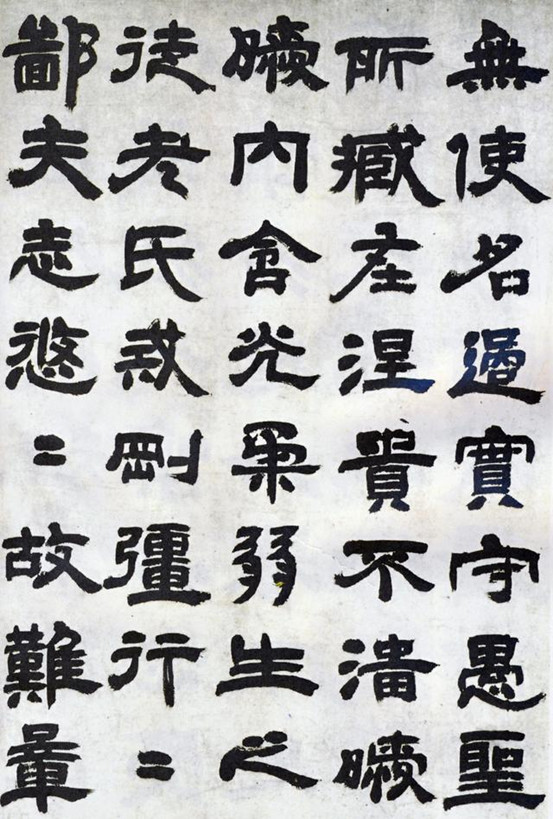 無使名過實守愚聖
所臧在涅貴不淄曖
曖內含光柔弱生之
徒老氏戒剛彊行〻
鄙夫志悠〻故難量